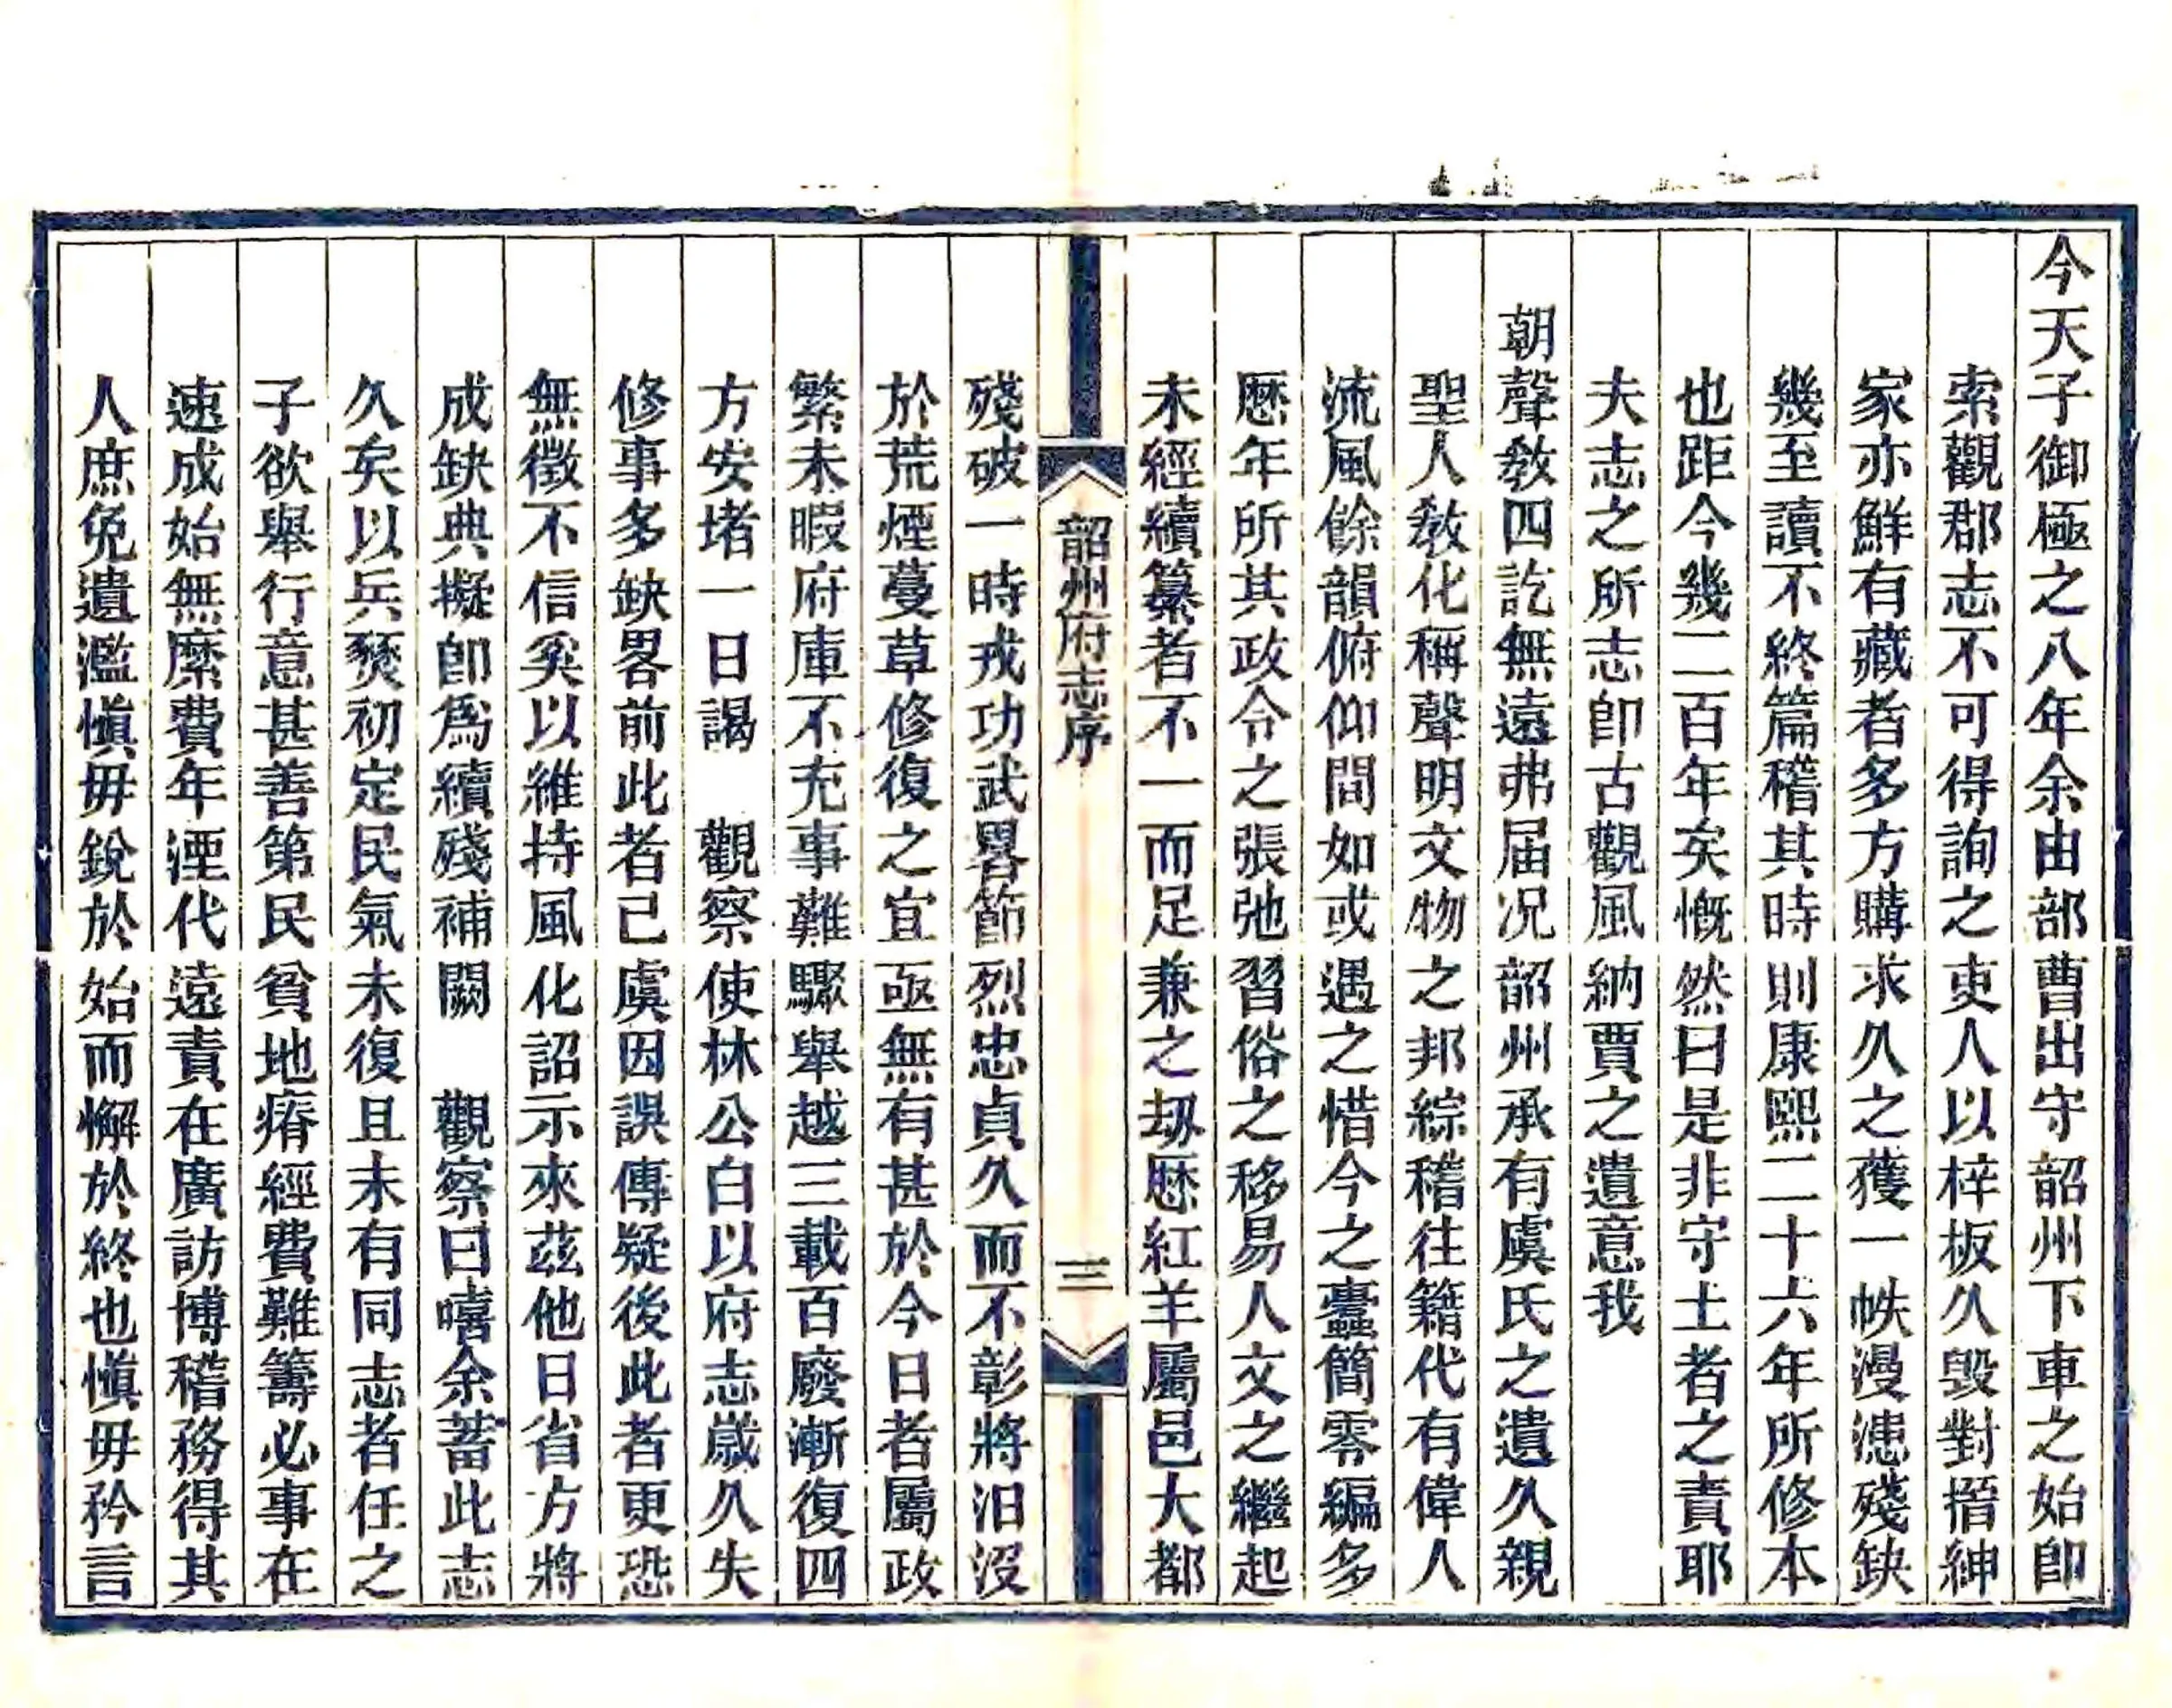 今天子御極之八年余由部曹出守韶州下車之始卽
索觀郡志不可得詢之吏人以梓板久毁對搢紳
家亦鮮有藏者多方購求久之獲一帙漫漶殘缺
幾至讀不終篇稽其時則康熙二十六年所修本
也距今幾二百年矣慨然曰是非守土者之責耶
夫志之所志卽古觀風納賈之遺意我
朝聲敎四訖無遠弗届况韶州承有虞氏之遺久親
聖人敎化稱聲明文物之邦綜稽往籍代有偉人
流風餘韻俯仰間如或遇之惜今之蠹簡零編多
歷年所其政令之張弛習俗之移易人文之繼起
未經續纂者不一而足兼之刼歷紅羊屬邑大都
韶州府志序
三
殘破一時戎功武畧節烈忠貞久而不彰將汨沒
於荒煙蔓草修復之宜亟無有甚於今日者屬政
繁未暇府庫不充事難驟舉越三載百廢漸復四
方安堵一日謁 觀察使林公白以府志歲久失
修事多缺畧前此者已虞因誤傳疑後此者更恐
無徵不信奚以維持風化詔示來茲他日省方將
成缺典擬卽爲續殘補闕 觀察曰嘻余蓄此志
久矣以兵燹初定民氣未復且未有同志者任之
子欲舉行意甚善第民貧地瘠經費難籌必事在
速成始無縻費年湮代遠責在廣訪博稽務得其
人庶免遺濫愼毋銳於始而懈於終也愼毋矜言